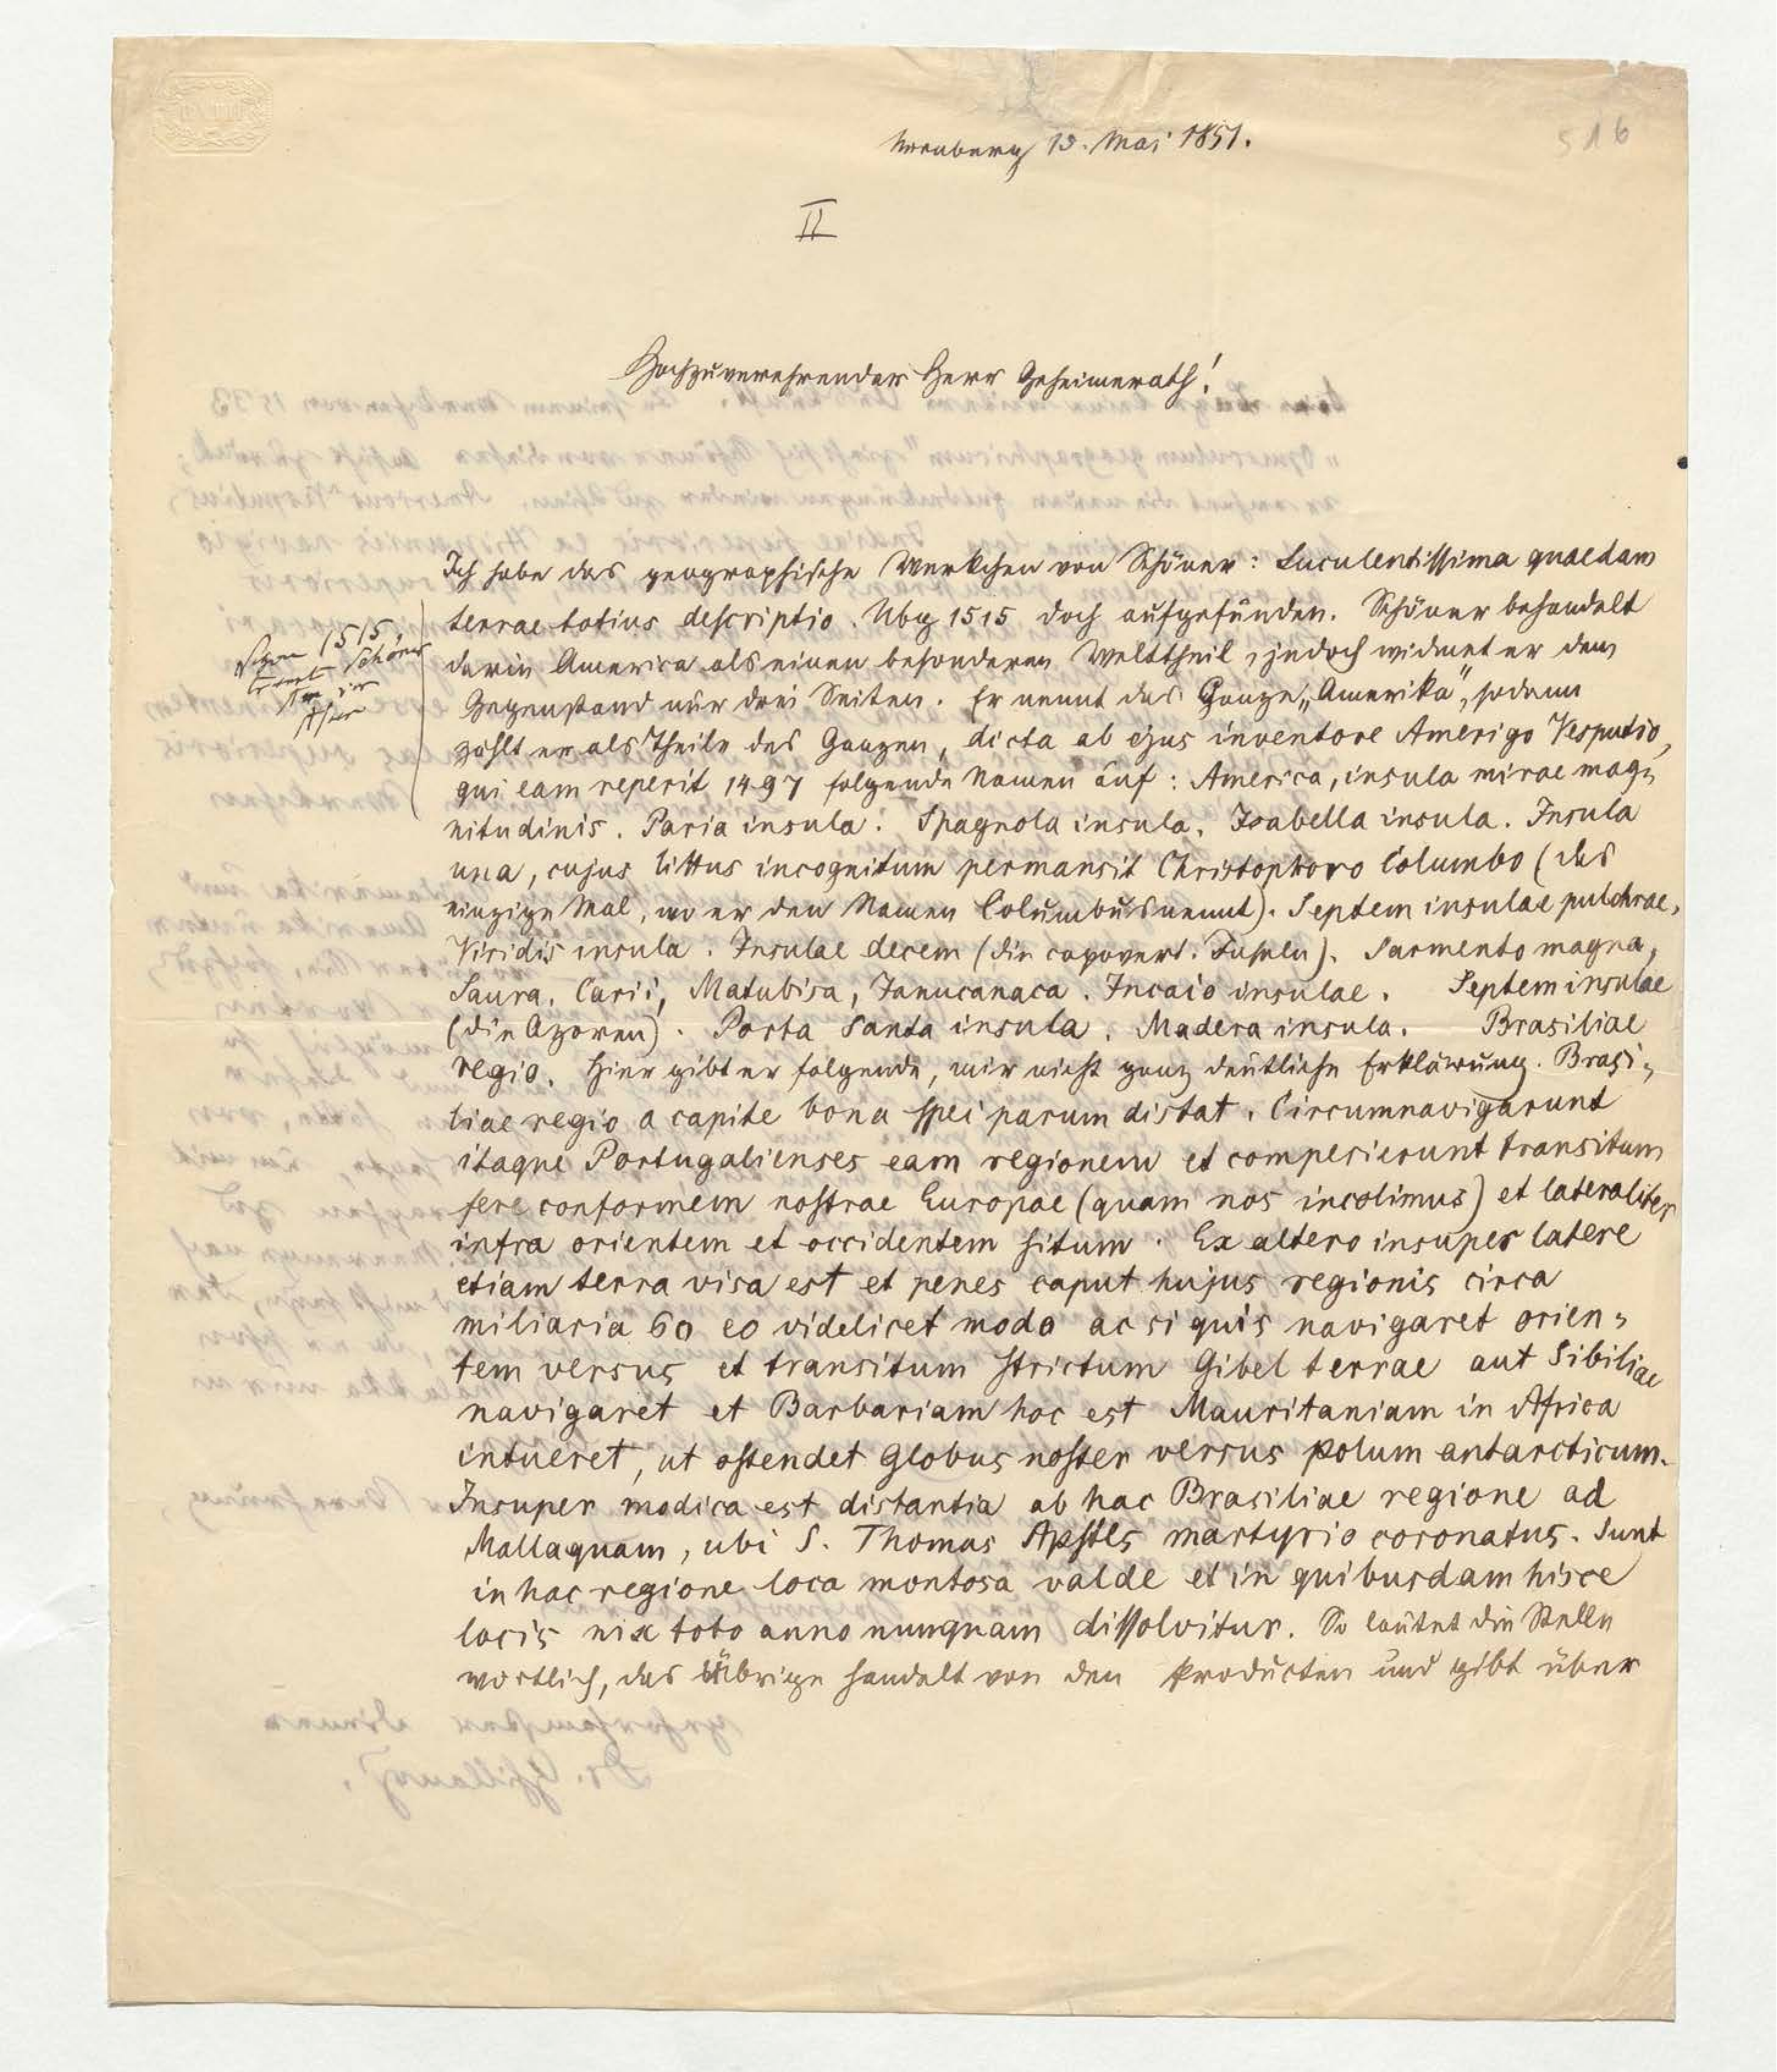 516
Nürnberg 13. Mai 1851.
II
Hochzuverehrender Herr Geheimerath!
Ich habe das geographische Werkchen von Schöner: Luculentissima quaedam
terrae totius descriptio. Nbg 1515 doch aufgefunden. Schöner behandelt
darin America als einen besonderen Welttheil, jedoch widmet er dem
Gegenstand nur drei Seiten. Er nennt das Ganze „Amerika“, sodann
zählt er als Theile des Ganzen, dicta ab ejus inventore Amerigo Vesputio,
qui eam reperit 1497 folgende Namen auf: America, insula mirae mag-
nitudinis. Paria insula. Spagnola insula. Isabella insula. Insula
una, cujus littus incognitum permansit Christophoro Columbo (das
einzige Mal, wo er den Namen Columbus nennt). Septem insulae pulchrae,
Viridis insula. Insulae decem (die capovert. Inseln). Sarmento magna,
Saura, Carii, Matubisa, Tanucanaca. Incaio insulae. Septem insulae
(die Azoren). Porta Santa insula. Madera insula. Brasiliae
regio. Hier gibt er folgende, mir nicht ganz deutliche Erklärung. Brasi-
liae regio a capite bona spei parum distat. Circumnavigarunt
itaque Portugalienses eam regionem et comperierunt transitum
fere conformem nostrae Europae (quam nos incolimus) et lateraliter
infra orientem et occidentem situm. Ex altero insuper latere
etiam terra visa est et penes caput hujus regionis circa
miliaria 60 eo videlicet modo ac si quis navigaret orien-
tem versus et transitum strictum Gibel terrae aut Sibiliae
navigaret et Barbariam hoc est Mauritaniam in Africa
intueret, ut ostendet globus noster versus polum antarcticum.
Insuper modica est distantia ab hac Brasiliae regione ad
Mallaquam, ubi S. Thomas Apstls martyrio coronatus. Sunt
in hac regione loca montosa valde et in quibusdam hisce
locis nix toto anno nunquam dissolvitur. So lautet die Stelle
wortlich, das Übrige handelt von den Producten und gibt über
1515,
Schöner